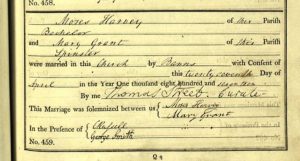 No. 458.
Moses Harvey of this Parish
Bachelor
and Mary Grant of this Parish
Spinster
were married in this Church by Banns with Consent of
this twenty seventh Day of
April in the Year One thousand eight Hundred and
By me Thomas Streeb. Curate
This Marriage was solemnized between us { Moses Harvey
Mary Grant
In the Presence of {
George Smith
No. 459.